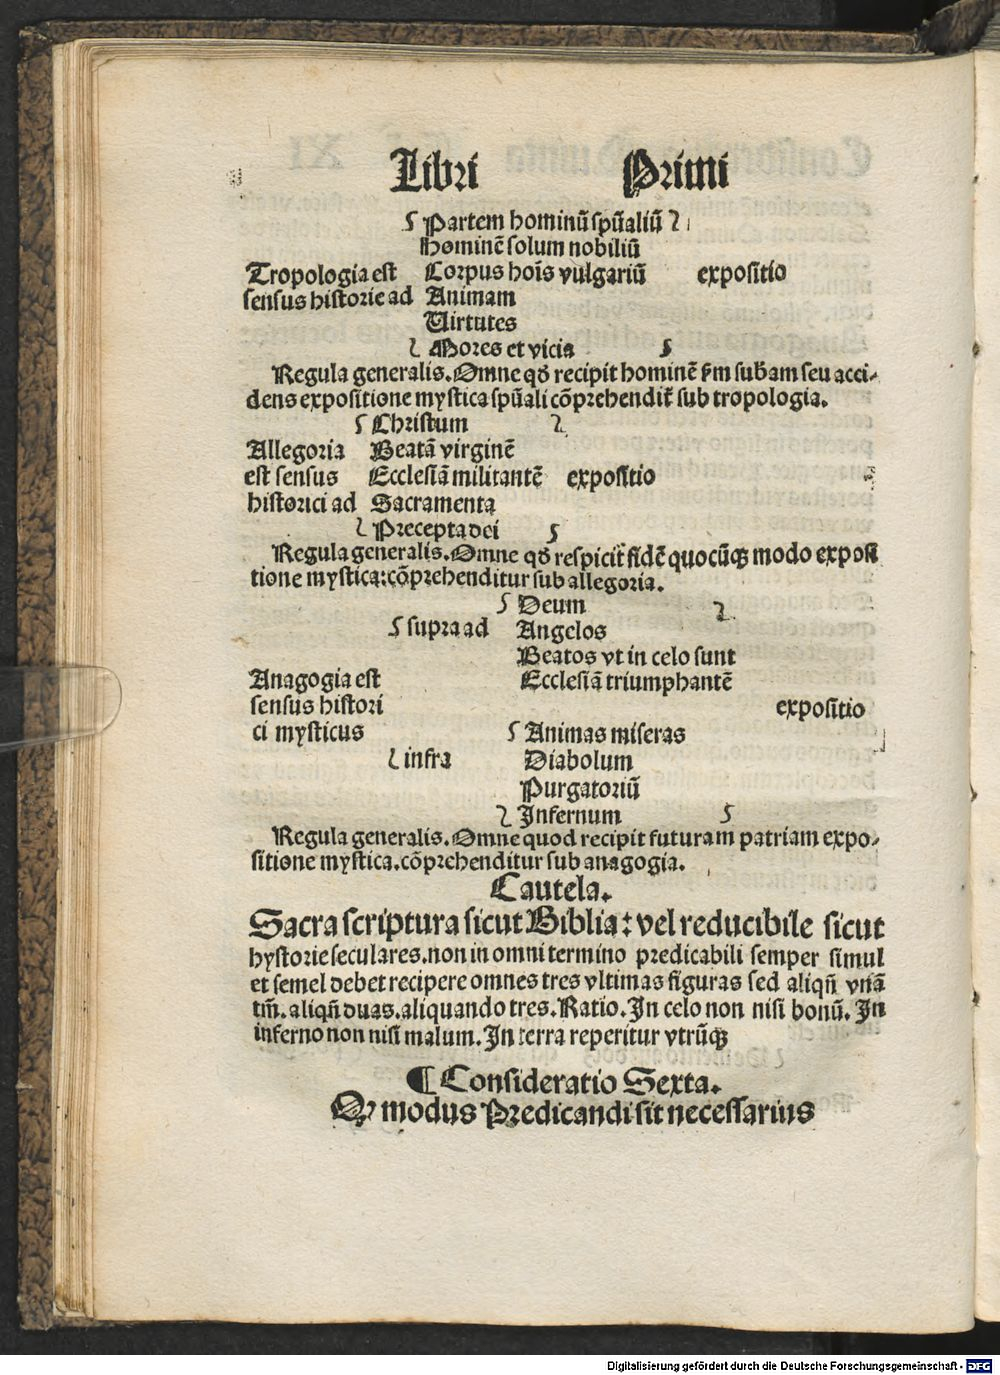 Libri Primi
Partem hominū spūaliū
Hominē solum nobiliū
Tropologia est Corpus hoīs vulgariū expositio
sensus historie ad Animam
Virtutes
Mores et vicia
Regula generalis. Omne qđ recipit hominē ẜm subāam seu acci-
dens expositione mystica spūali cōprehendiť sub tropologia.
Christum
Allegoria Beatā virginē
est sensus Ecclesiā militantē expositio
historici ad Sacramenta
Precepta dei
Regula generalis. Omne qđ respiciť fidē quocūqꝫ modo exposi
tione mystica: cōprehenditur sub allegoria.
Deum
supra ad Angelos
Beatos vt in celo sunt
Anagogia est Ecclesiā triumphantē
sensus histori expositio
ci mysticus Animas miseras
infra Diabolum
Purgatoriū
Infernum
Regula generalis. Omne quod recipit futuram patriam expo-
sitione mystica. cōprehenditur sub anagogia.
Cautela.
Sacra scriptura sicut Biblia: vel reducibile sicut
hystorie seculares. non in omni termino predicabili semper simul
et semel debet recipere omnes tres vltimas figuras sed aliqñ vnā
tm̄. aliqñ duas. aliquando tres. Ratio. In celo non nisi bonū. In
inferno non nisi malum. In terra reperitur vtrūqꝫ
¶ Consideratio Sexta.
Qꝛ modus Predicandi sit necessarius
Digitalisierung gefördert durch die Deutsche Forschungsgemeinschaft - DFG